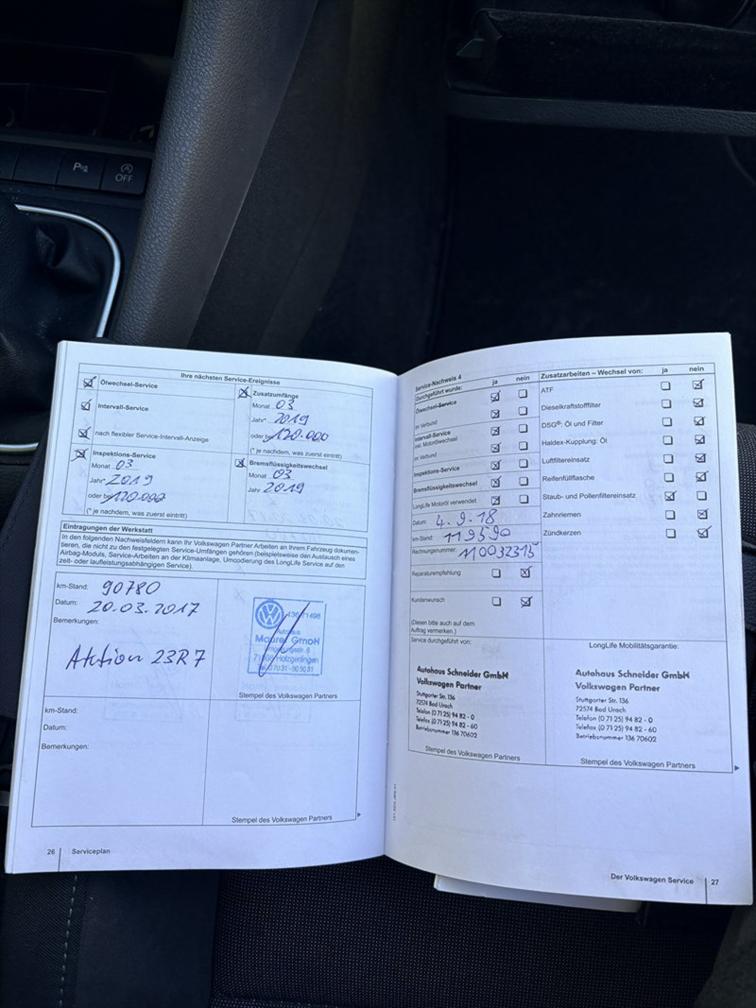 P
OFF
Ihre nächsten Service-Ereignisse
Ölwechsel-Service
Intervall-Service
nach flexibler Service-Intervall-Anzeige
Zusatzumfänge
Monat 03
Jahr* 2019
oder bei 120.000
(* je nachdem, was zuerst eintritt)
Inspektions-Service
Monat 03
Jahr* 2019
oder bei 120.000
(* je nachdem, was zuerst eintritt)
Bremsflüssigkeitswechsel
Monat 03
Jahr 2019
Eintragungen der Werkstatt
In den folgenden Nachweisfeldern kann Ihr Volkswagen Partner Arbeiten an Ihrem Fahrzeug dokumen-
tieren, die nicht zu den festgelegten Service-Umfängen gehören (beispielsweise den Austausch eines
Airbag-Moduls, Service-Arbeiten an der Klimaanlage, Umcodierung des LongLife Service auf den
zeit- oder laufleistungsabhängigen Service).
km-Stand: 90780
Datum: 20.03.2017
Bemerkungen:
Aktion 23R7
Autohaus
GmbH
Holzgerlingen
Stempel des Volkswagen Partners
km-Stand:
Datum:
Bemerkungen:
Stempel des Volkswagen Partners
26 Serviceplan
Service-Nachweis 4
Durchgeführt wurde: ja nein
Ölwechsel-Service
im Verbund
Intervall-Service
inkl. Motorölwechsel
im Verbund
Inspektions-Service
Bremsflüssigkeitswechsel
LongLife Motoröl verwendet
Datum: 4.9.18
km-Stand: 119590
Rechnungsnummer: 110032315
Reparaturempfehlung
Kundenwunsch
(Diesen bitte auch auf dem
Auftrag vermerken.)
Zusatzarbeiten – Wechsel von: ja nein
ATF
Dieselkraftstofffilter
DSG®: Öl und Filter
Haldex-Kupplung: Öl
Luftfiltereinsatz
Reifenfüllflasche
Staub- und Pollenfiltereinsatz
Zahnriemen
Zündkerzen
Service durchgeführt von:
Autohaus Schneider GmbH
Volkswagen Partner
Stuttgarter Str. 136
72574 Bad Urach
Telefon (0 71 25) 94 82 - 0
Telefax (0 71 25) 94 82 - 60
Betriebsnummer 136 70602
Stempel des Volkswagen Partners
LongLife Mobilitätsgarantie:
Autohaus Schneider GmbH
Volkswagen Partner
Stuttgarter Str. 136
72574 Bad Urach
Telefon (0 71 25) 94 82 - 0
Telefax (0 71 25) 94 82 - 60
Betriebsnummer 136 70602
Stempel des Volkswagen Partners
Der Volkswagen Service 27